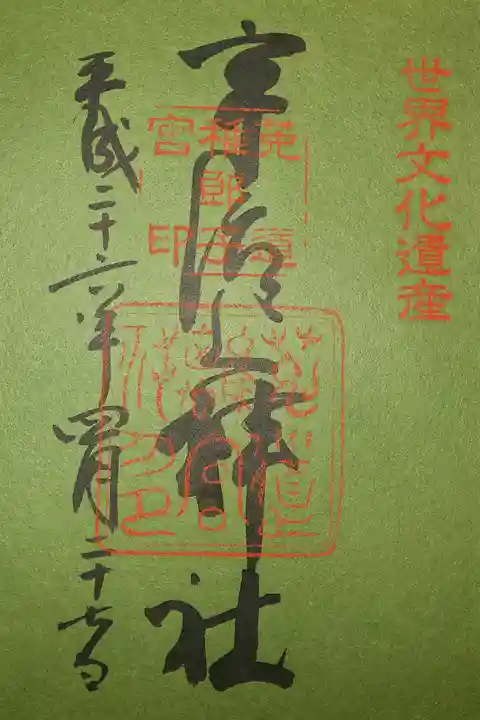 世界文化遺産
宇治上神社
菟道
稚郎子
宮印
平成二十六年 四月二十七日